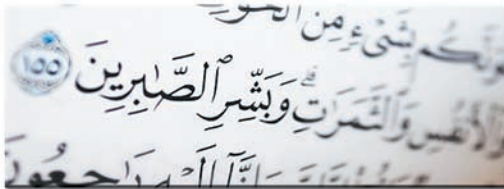 بِشَىْءٍ مِّنَ ٱلْخَوْفِ
وَٱلْأَنفُسِ وَٱلثَّمَرَٰتِ ۗ وَبَشِّرِ ٱلصَّٰبِرِينَ ١٥٥
وَإِنَّآ إِلَيْهِ رَٰجِعُونَ